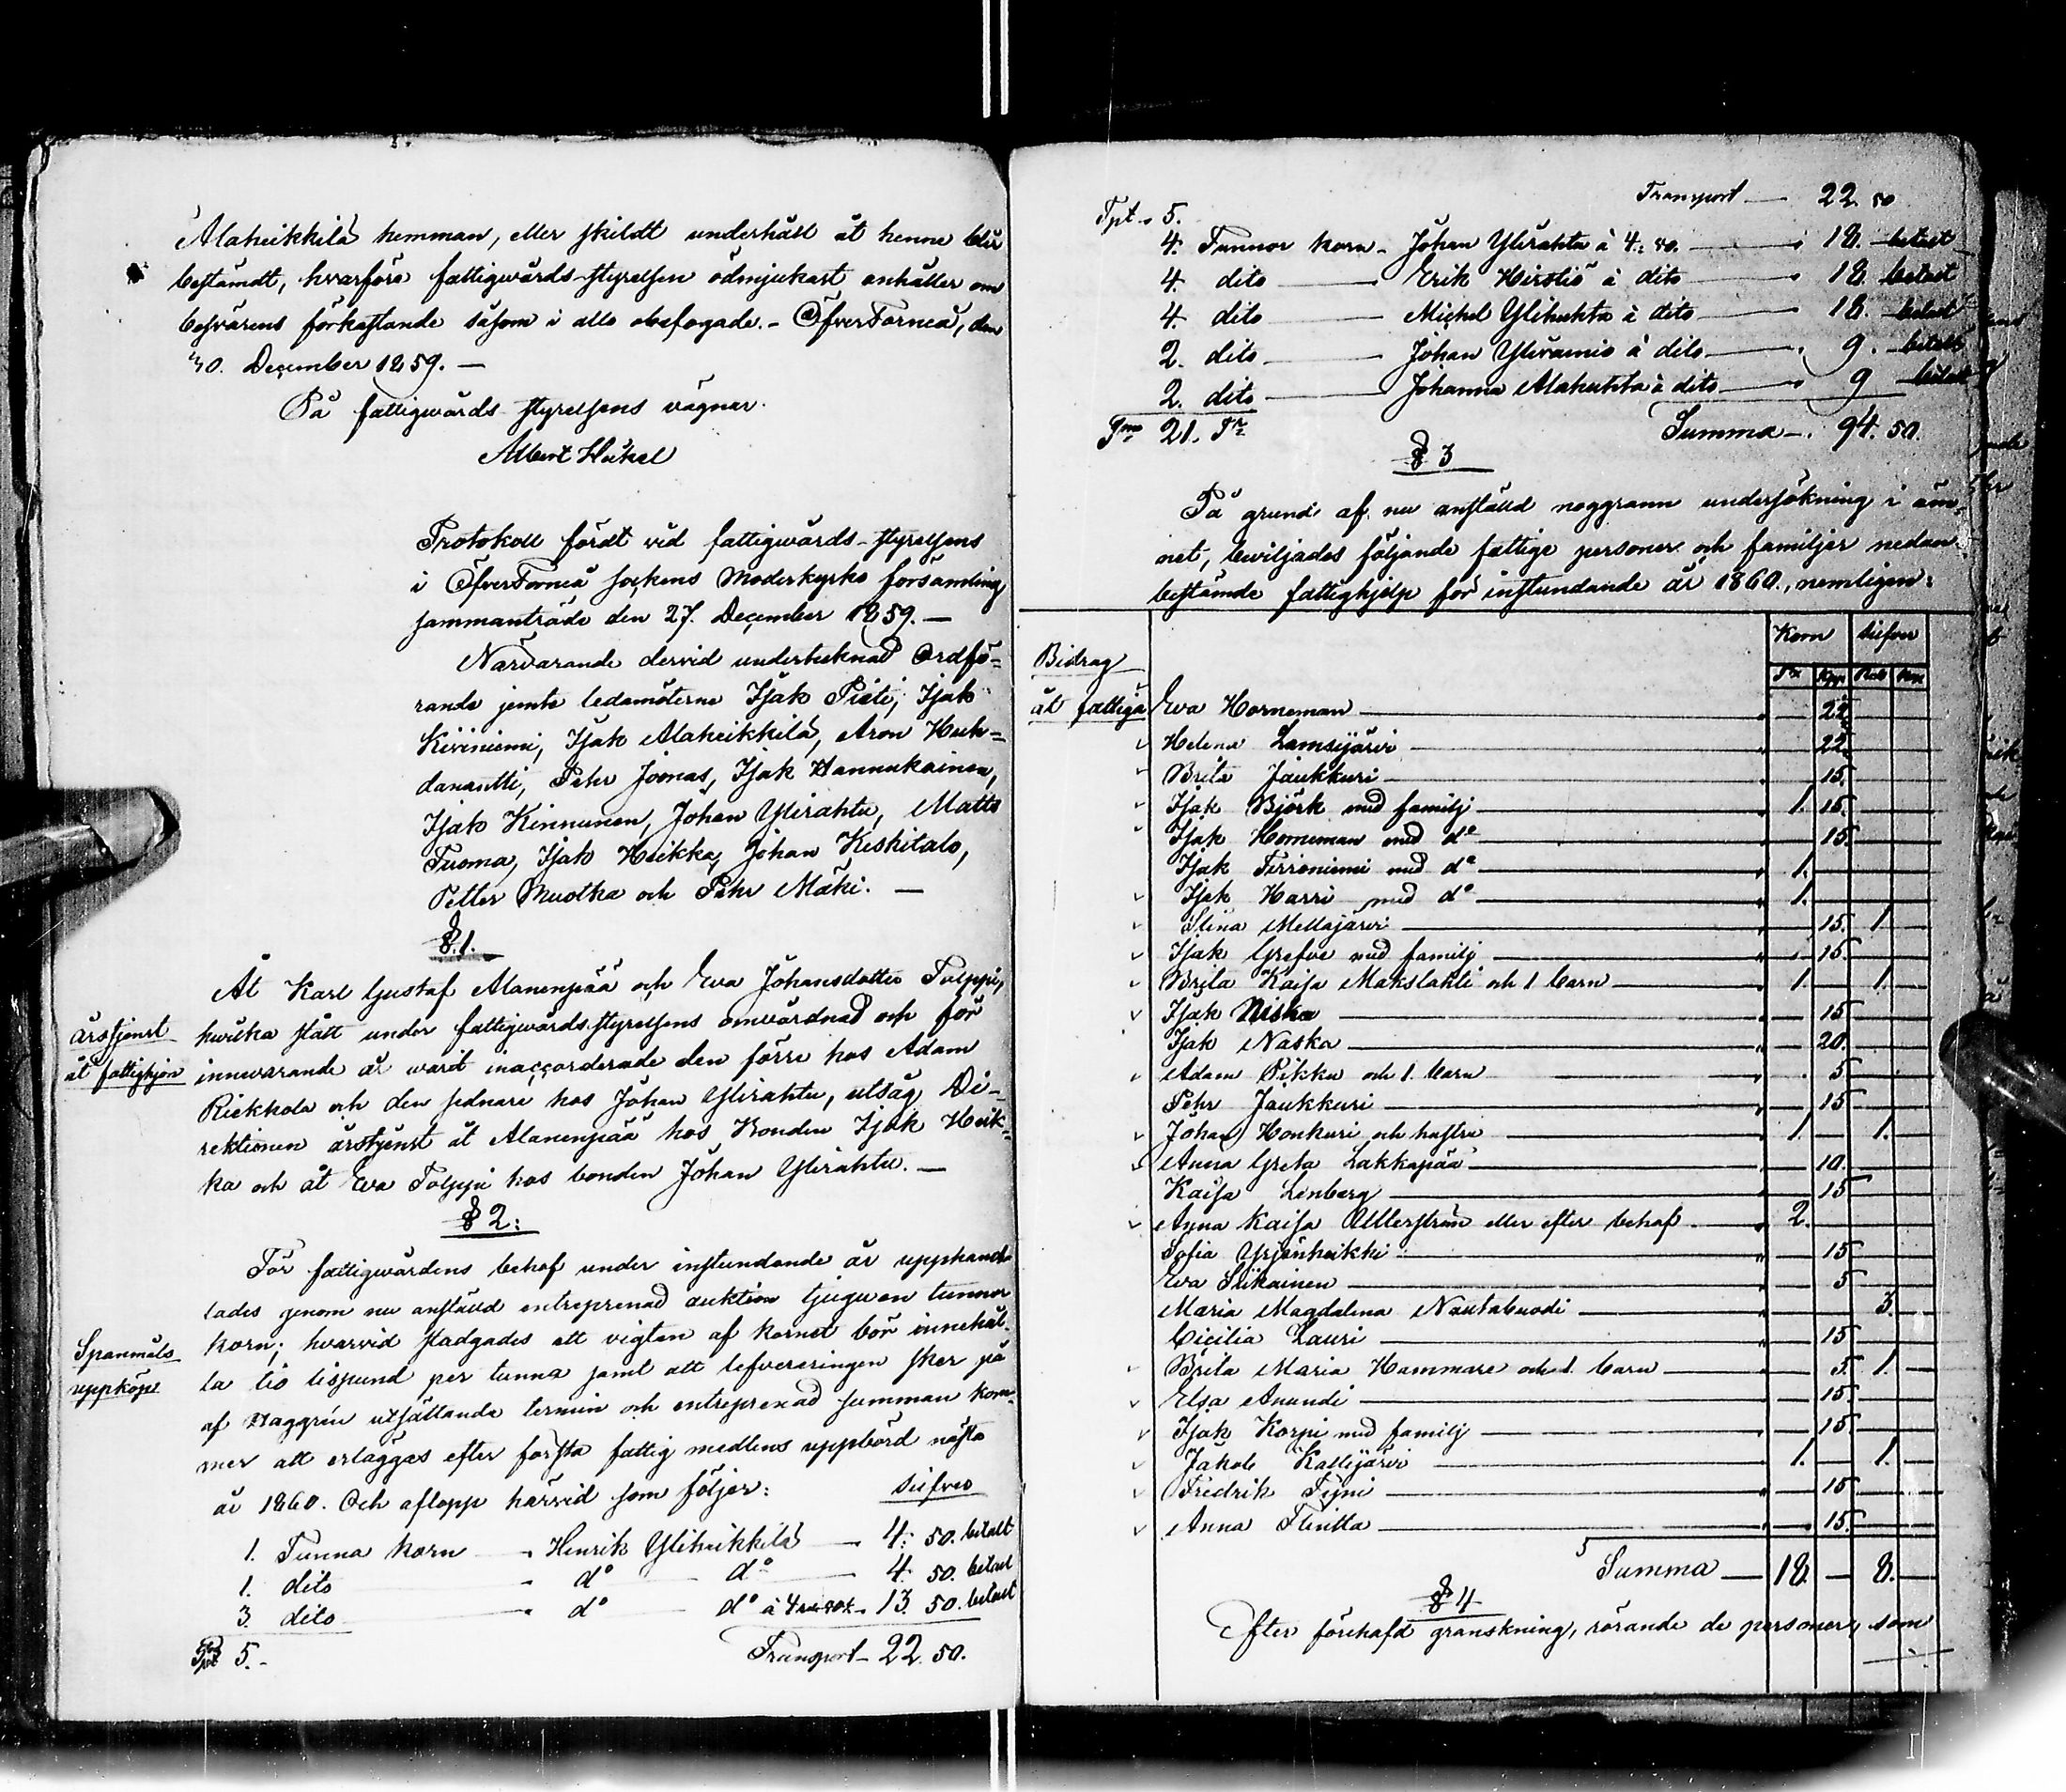 Alaheikkilä hemman, eller skildt underhåll åt henne blir
bestämdt, hvarföre fattigwårds-styrelsen ödmjukast anhåller om
besvärens förkastande såsom i allo obefogade. - ÖfverTorneå, den
30. December 1859. —
På fattigwårds styrelsens vägnar.
Albert Heikel
Protokoll fördt vid fattigwårds-styrelsens
i ÖfverTorneå sockens Moderkyrko församling
sammanträde den 27. December 1859. —
Närvarande dervid undertecknad Ordfö=
rande jemte ledamöterne Isak Pieti, Isak
Kiviniemi, Isak Alaheikkilä, Aron Huh=
danantti, Pehr Joonas, Isak Hannukainen,
Isak Kinnunen, Johan Ylirahtu, Matts
Tuoma, Isak Heikka, Johan Keskitalo,
Petter Muotka och Pehr Mäki. —
§.1.
Åt Karl Gustaf Alanenpää och Eva Johansdotter Tolppi,
årstjenst
hwilka stått under fattigwårds styrelsens omwårdnad och för
åt fattighjon
innewarande år warit inaccorderade den förre hos Adam
Riekkola och den sednare hos Johan Ylirahtu, utsåg Di-
rektionen årstjenst åt Alanenpää hos Bonden Isak Heik=
ka och åt Eva Tolppi hos bonden Johan Ylirahtu. —
§ 2:
För fattigwårdens behof under instundande år upphand-
lades genom nu anställd entreprenad auktion tjuguen tunnor
Spanmåls
korn; hvarvid stadgades att vigten af kornet bör innehål-
uppköpe
la tio lispund per tunna samt att lefvereringen sker på
af Haggrén utsättande termin och entreprenad summan kom-
mer att erläggas efter första fattig medlens uppbörd nästa
år 1860. Och aflopp härvid som följer:
silfver
1. Tunna korn — Henrik Yliheikkilä — 4: 50. betalt
1. dito - do do — 4. 50. betalt
3. dito - do do à 4 — 13. 50. betalt
5. - Transport - 22. 50.
Transport — 22. 50
Tpt. 5.
4. Tunnor korn - Johan Ylirahtu à 4: 50. — 18. betalt
4. dito — Erik Hirstiö à dito — 18. betalt
4. dito — Michel Ylihuhta à dito — 18. betalt
2. dito — Johan Ylivainio à dito — 9. betalt
2. dito — Johanna Alahuhta à dito — 9 betalt
Sma 21. Tr Summa —. 94. 50.
§ 3
På grund af nu anställd noggrann undersökning i äm-
net, beviljades följande fattige personer och familjer nedan-
bestämde fattighjelp för instundande år 1860., nemligen:
Korn silfver
Bidrag
Tr Kpp Rub Kop
åt fattiga Eva Horneman — 22
Helena Lamsijärvi — 22.
Brita Jaukkuri — 15.
Isak Björk med familj — 1. 15.
Isak Horneman med do — 15.
Isak Tirroniemi med do — 1.
Isak Harri med do — 1.
Stina Mellajärvi — 15. 1.
Isak Grefve med familj — 15
Brita Kaisa Makslahti och 1 barn — 1. — 1. —
Isak Niska — 15
Isak Naska — 20.
Adam Pikku och 1. barn 5
Pehr Jaukkuri — 15
Johan Honkuri och hustru — 1. — 1. —
Anna Greta Lakkapää — 10.
Kaisa Linberg — 15
Anna Kaisa Ulterström eller efter behof — 2.
Sofia Yrjänheikki — 15
Eva Siikainen — 5
Maria Magdalena Nautabuodi — 3. —
Cicilia Lauri — 15
Brita Maria Hammare och 1. barn — 5. 1. —
Elsa Anundi — 15.
Isak Korpi med familj — 15.
Jakob Kallijärvi — 1. — 1. —
Fredrik Fijni — 15
Anna Flinitta — 15.
Summa — 18. — 8. —
§ 4
Efter förehafd granskning, rörande de personer, som